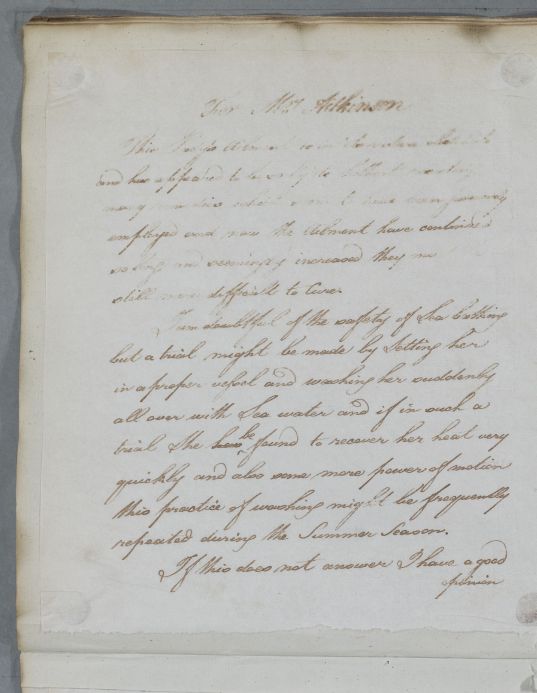 For Mrs Atkinson
This Ladys Ailment
and has appeared to be
many remedies which
employed and now the Ailment have continued
so long and seemingly increased they
still more difficult to Cure.
I am doubtful of the safety of Sea Bathing
but a trial might be made by Setting her
in a proper vessel and washing her suddenly
all over with Sea water and if in such a
trial She be found to recover her heat very
quickly and also some more power of motion
this practice of washing might be frequently
repeated during the Summer Season.
If this does not answer I have a good
opinion